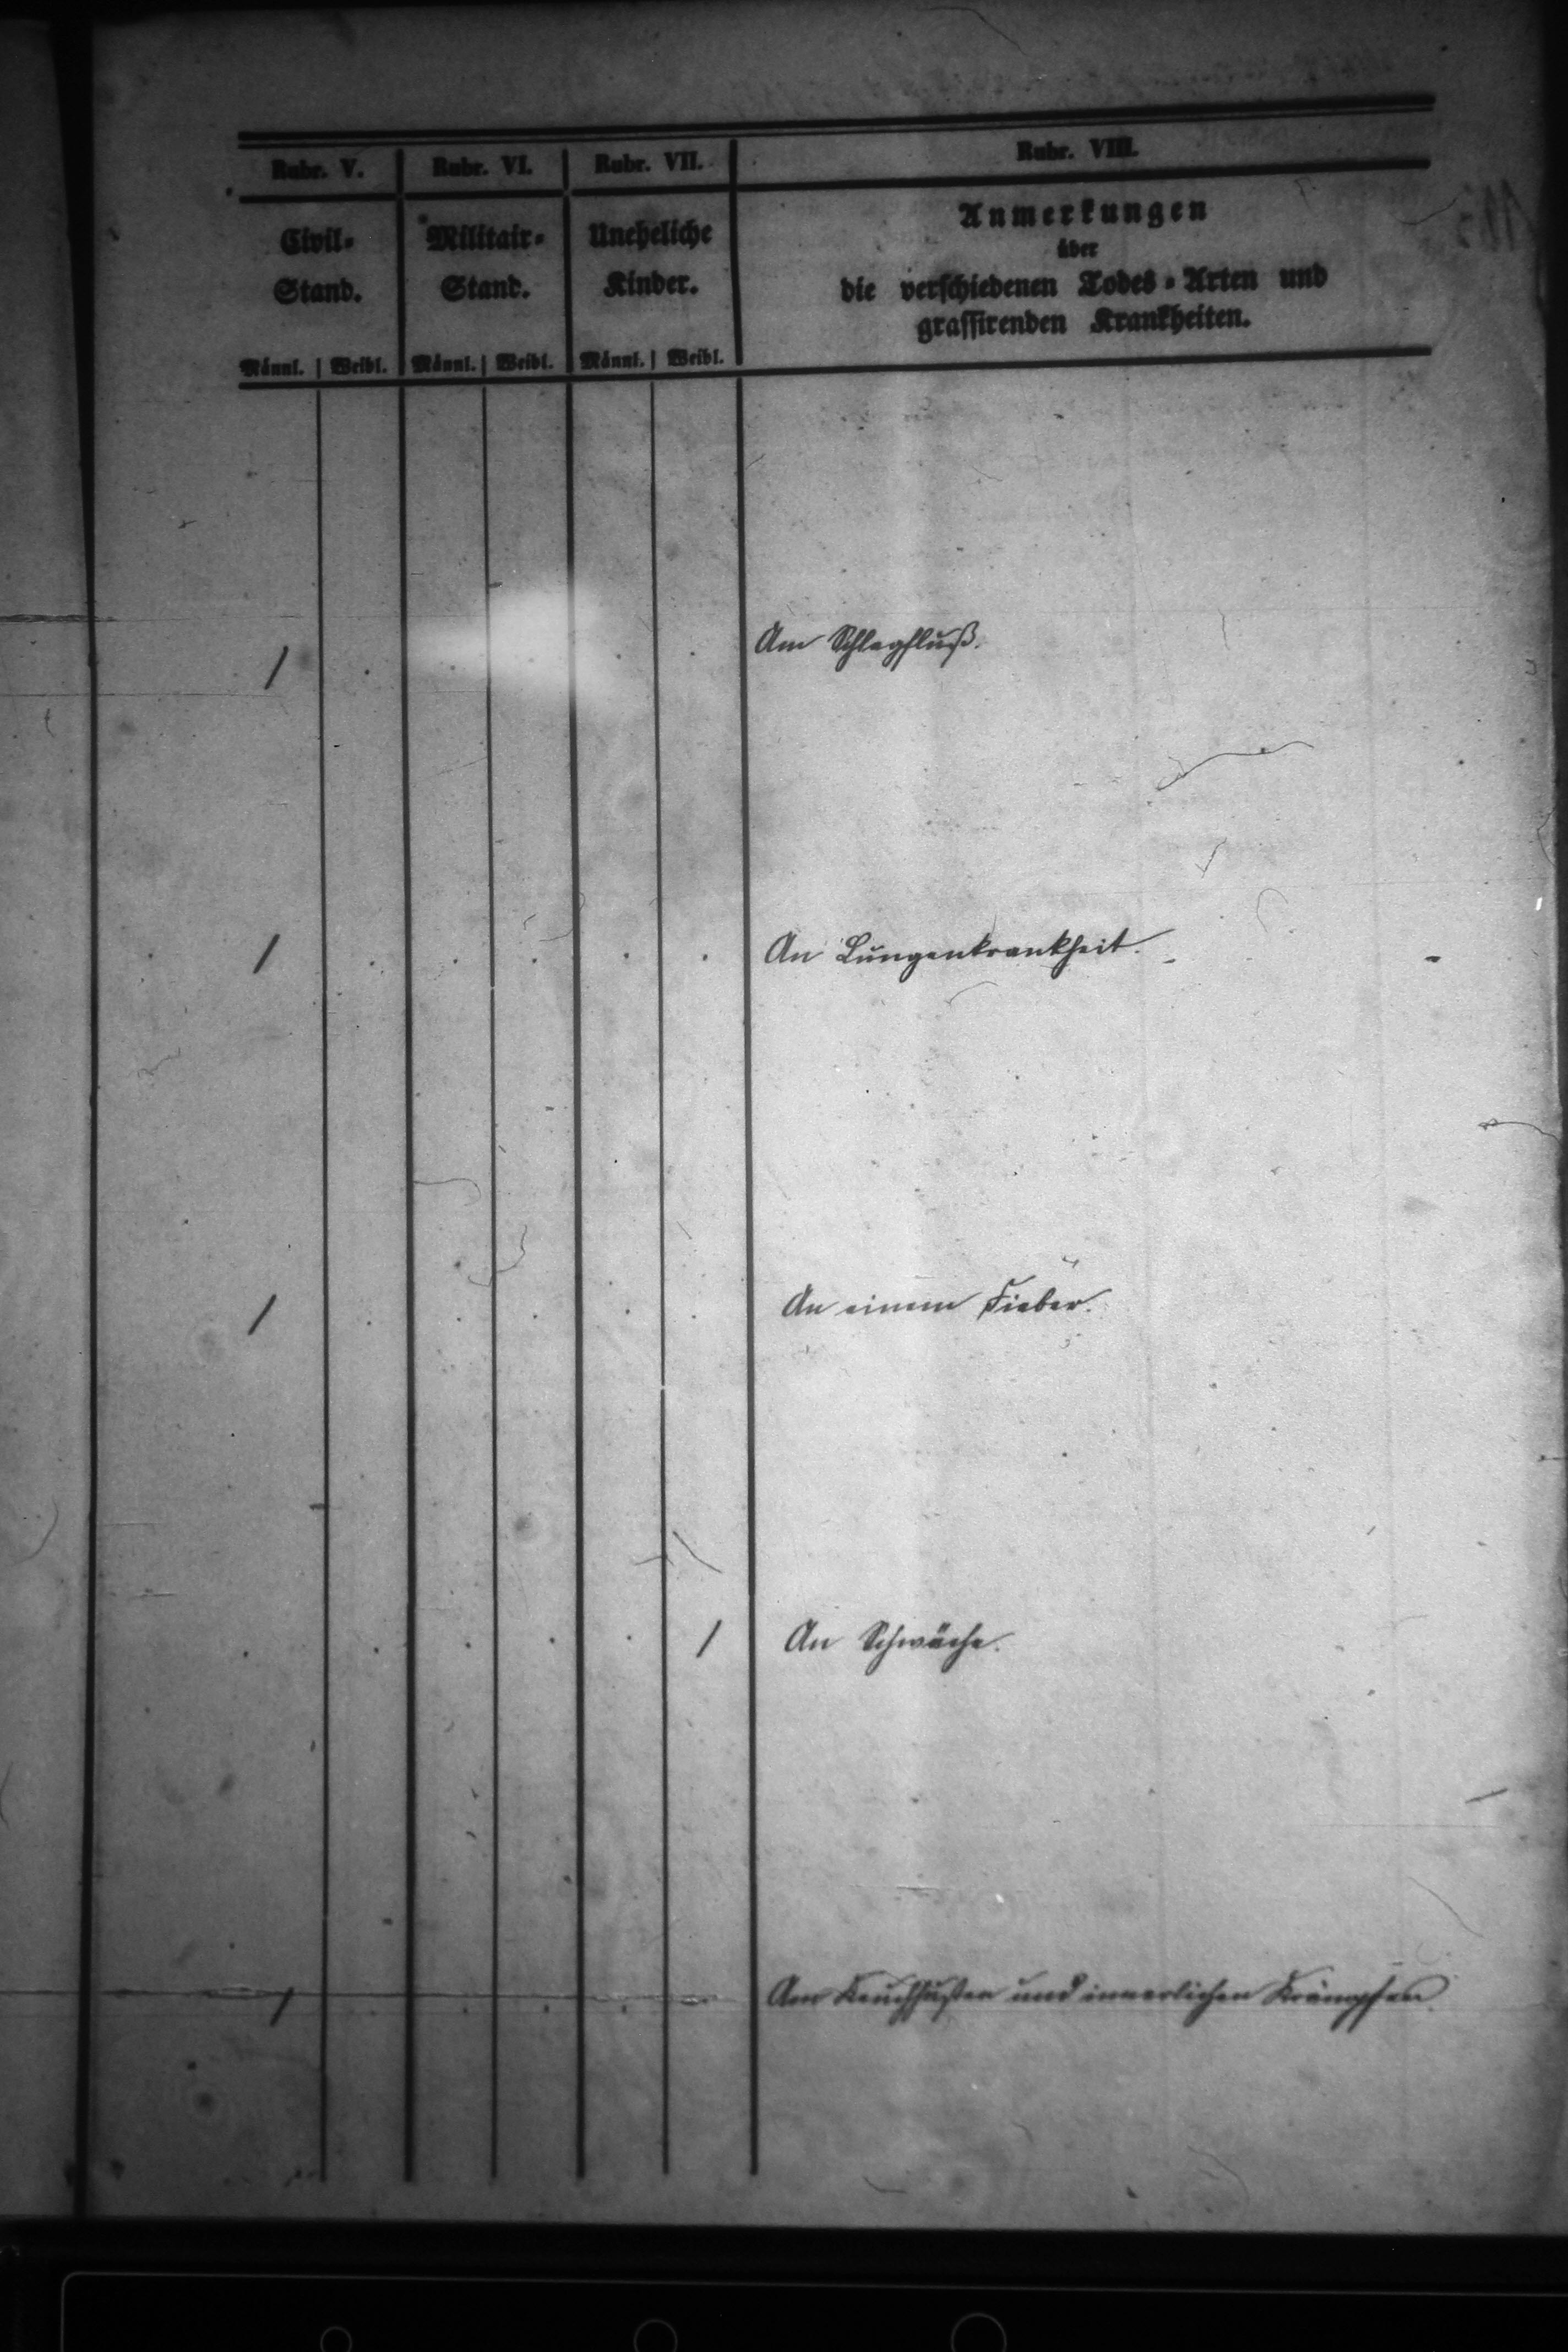 Rubr. V. Rubr. VI. Rubr. VII. Rubr. VIII.
Civil- Militair- Uneheliche Anmerkungen
Stand. Stand. Kinder. über
die verschiedenen Todes-Arten und
grassirenden Krankheiten.
Männl. Weibl. Männl. Weibl. Männl. Weibl.
1 Am Schlagfluß.
1 An Lungenkrankheit.
1 An einem Fieber.
1 An Schwäche.
1 Am Keuchhusten und innerlichen Krämpfen.